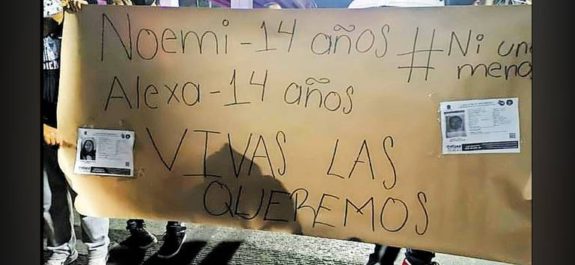 Noemi - 14 años
#Ni una
menos
Alexa - 14 años
VIVAS LAS
QUEREMOS